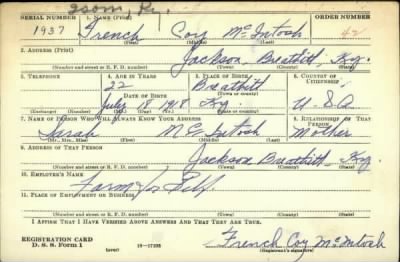 gsom, Ky.
SERIAL NUMBER 1. NAME (Print) ORDER NUMBER
1937 French Coy McIntosh 42
(First) (Middle) (Last)
2. ADDRESS (Print)
Jackson, Breathitt, Ky.
(Number and street or R. F. D. number) (Town) (County) (State)
3. TELEPHONE 4. AGE IN YEARS 5. PLACE OF BIRTH 6. COUNTRY OF CITIZENSHIP
22 Breathitt
DATE OF BIRTH (Town or county)
July 18 1918 Ky. U-S.A
(Exchange) (Number) (Mo.) (Day) (Yr.) (State or country)
7. NAME OF PERSON WHO WILL ALWAYS KNOW YOUR ADDRESS 8. RELATIONSHIP OF THAT PERSON
Sarah McIntosh Mother
(Mr., Mrs., Miss) (First) (Middle) (Last)
9. ADDRESS OF THAT PERSON
Jackson Breathitt, Ky.
(Number and street or R. F. D. number) (Town) (County) (State)
10. EMPLOYER'S NAME
Farm for Self.
11. PLACE OF EMPLOYMENT OR BUSINESS
(Number and street or R. F. D. number) (Town) (County) (State)
I AFFIRM THAT I HAVE VERIFIED ABOVE ANSWERS AND THAT THEY ARE TRUE.
REGISTRATION CARD
D. S. S. Form 1 (over) 16-17105 French Coy McIntosh
(Registrant's signature)